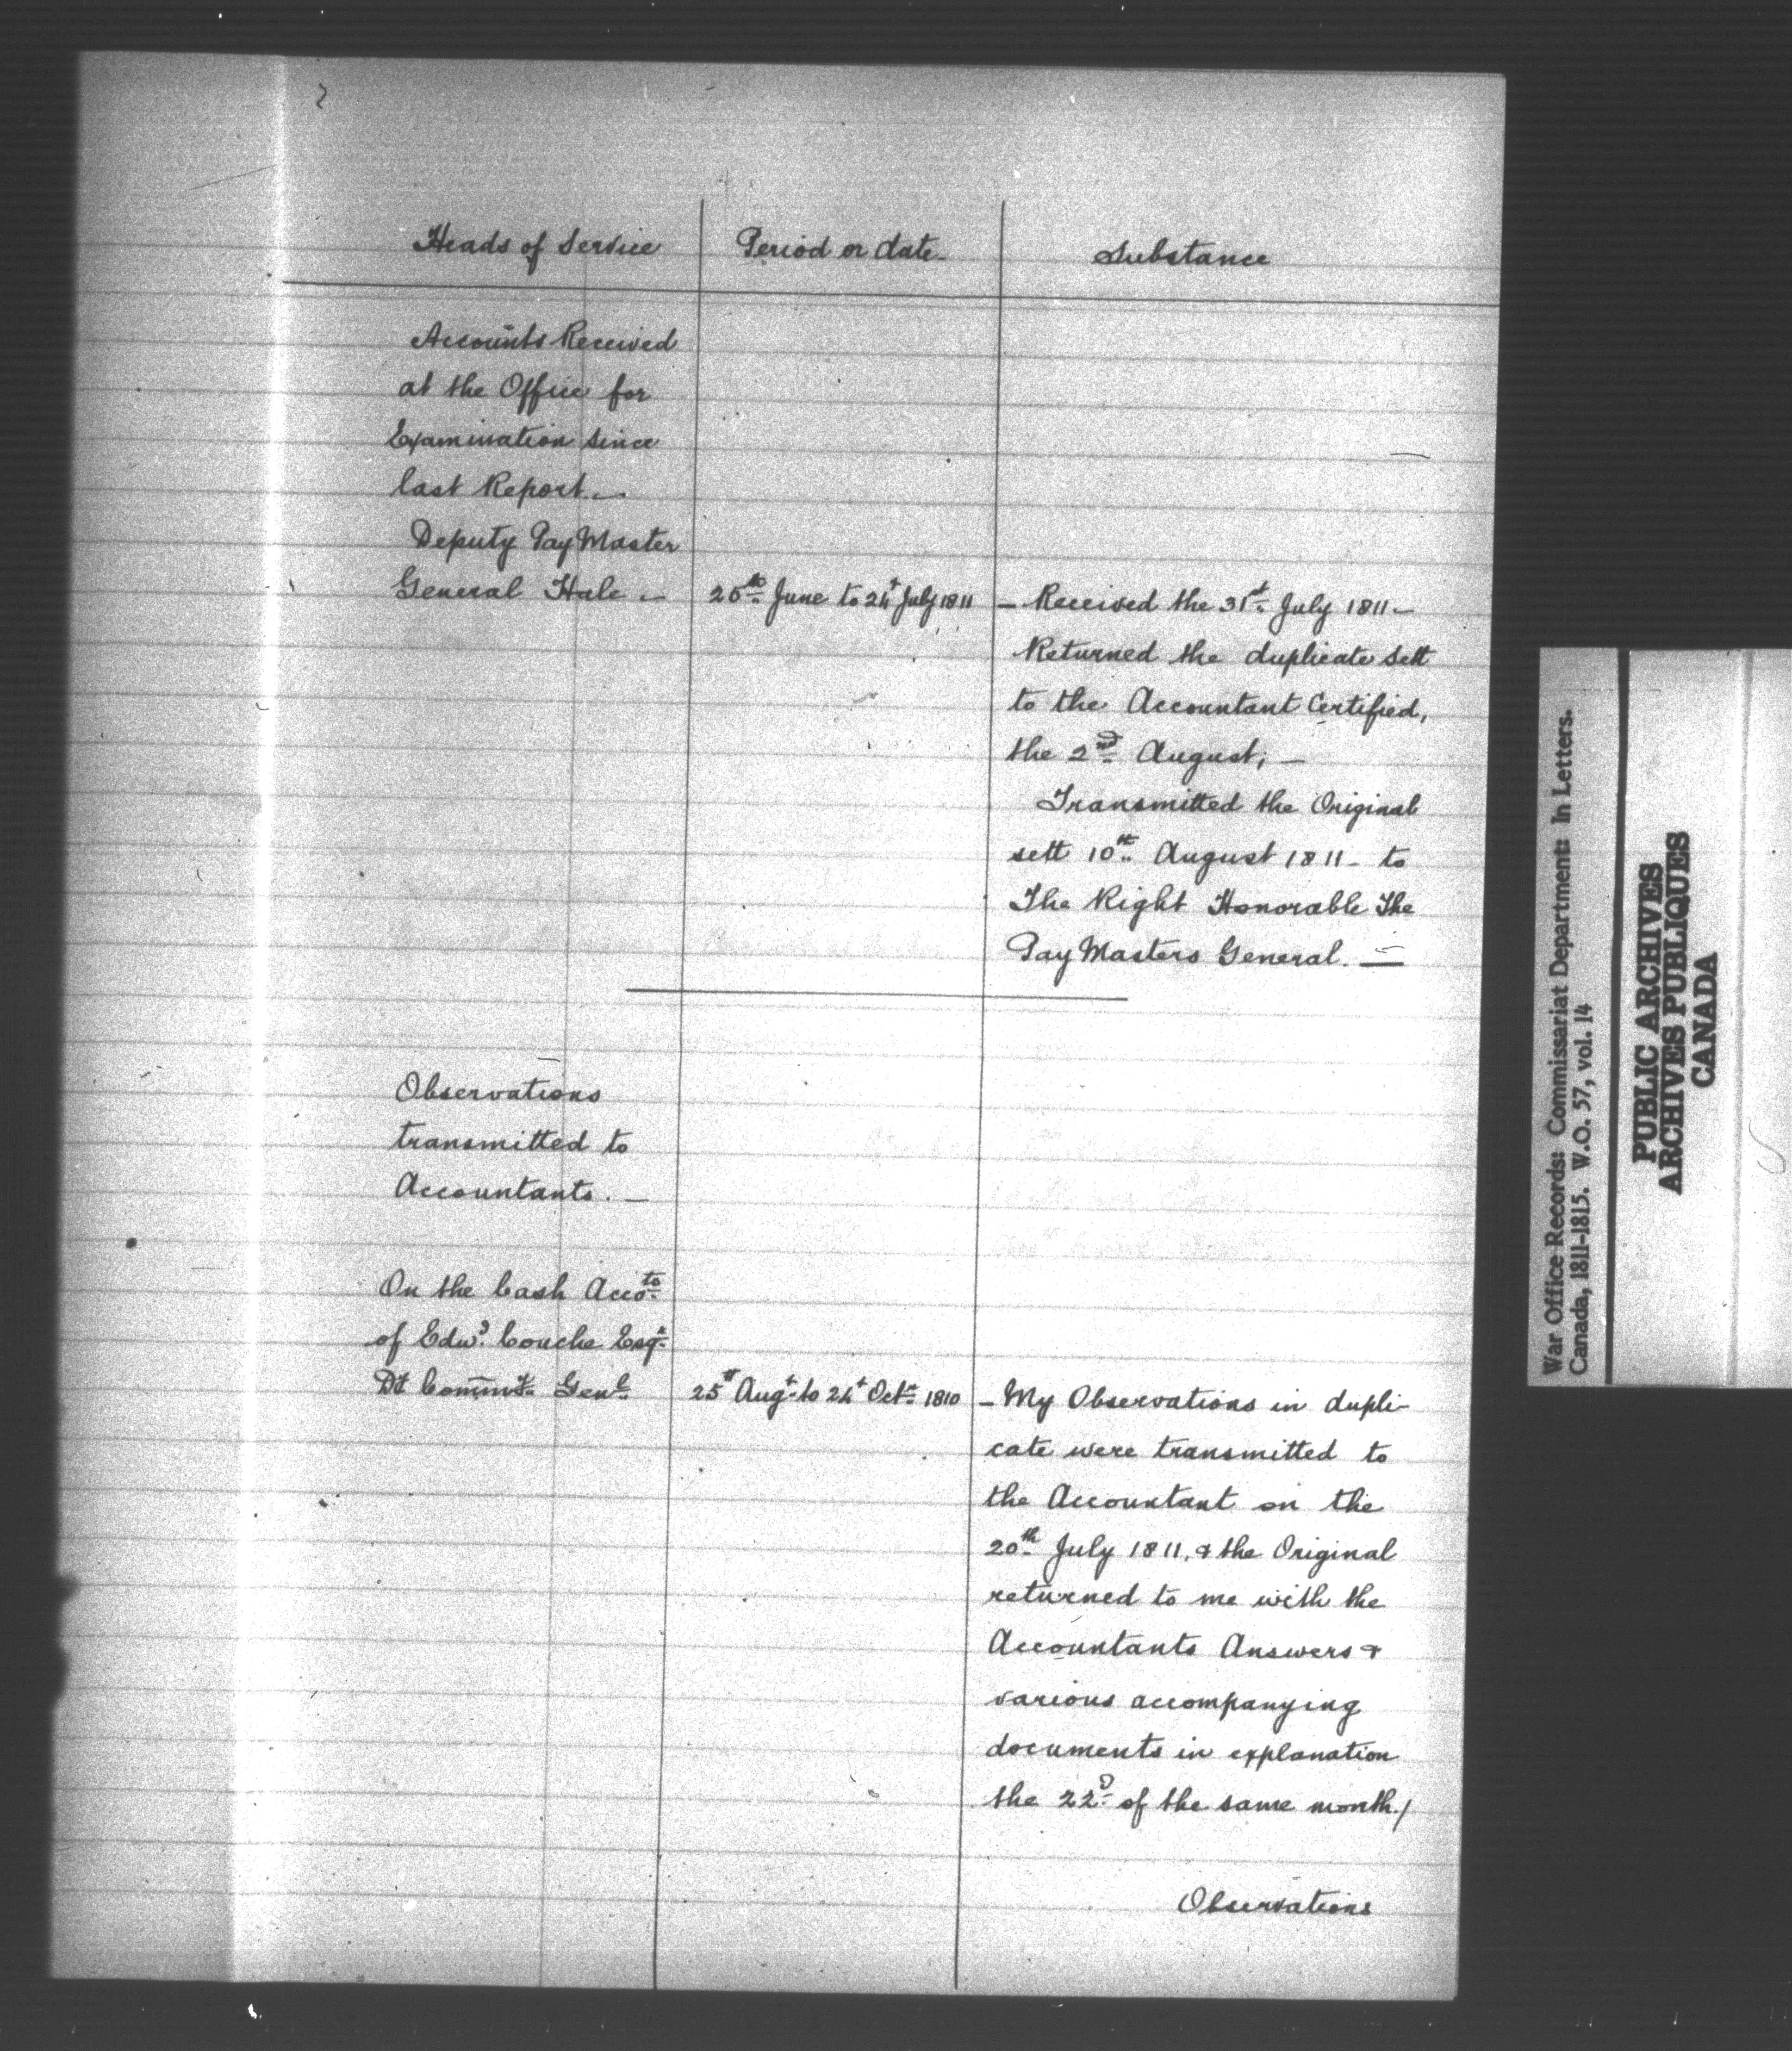 Heads of Service
Period or date
Substance
Accounts Received
at the Office for
Examination since
last Report. —
Deputy PayMaster
General Hale —
25th June to 24t July 1811
— Received the 31st July 1811 —
Returned the duplicate sett
to the Accountant Certified,
the 2nd August; —
Transmitted the Original
sett 10th August 1811 — to
The Right Honorable The
PayMasters General. —
Observations
transmitted to
Accountants. —
On the Cash Accots
of Edwd. Couche Esqr
Dt Commy Genl
25t Augt to 24t Octr 1810
— My Observations in dupli-
cate were transmitted to
the Accountant on the
20th July 1811, & the Original
returned to me with the
Accountants Answers &
various accompanying
documents in explanation
the 22d of the same month./
Observations
War Office Records: Commissariat Department: In Letters.
Canada, 1811-1815. W.O. 57, vol. 14
PUBLIC ARCHIVES
ARCHIVES PUBLIQUES
CANADA